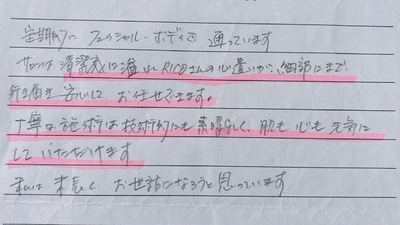 定期的に フェイシャル・ボディで 通っています
サロンは 清潔感に溢れ RICOさんの心遣いが、細部にまで
行き届き 安心して お任せできます。
丁寧な施術は 技術的にも素晴らしく、肌も心も元気に
して いただけます
私は 末長く お世話になろうと思っています